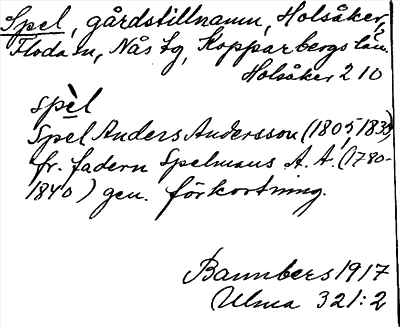 Spel, gårdstillnamn, Holsåker,
Floda sn, Nås tg, Kopparbergs län.
Holsåker 2 10
spèl
Spel Anders Andersson (1805, 1830)
fr. fadern Spelmans A. A. (1780-
1840) gen. förkortning.
Bannbers 1917
Ulma 321:2